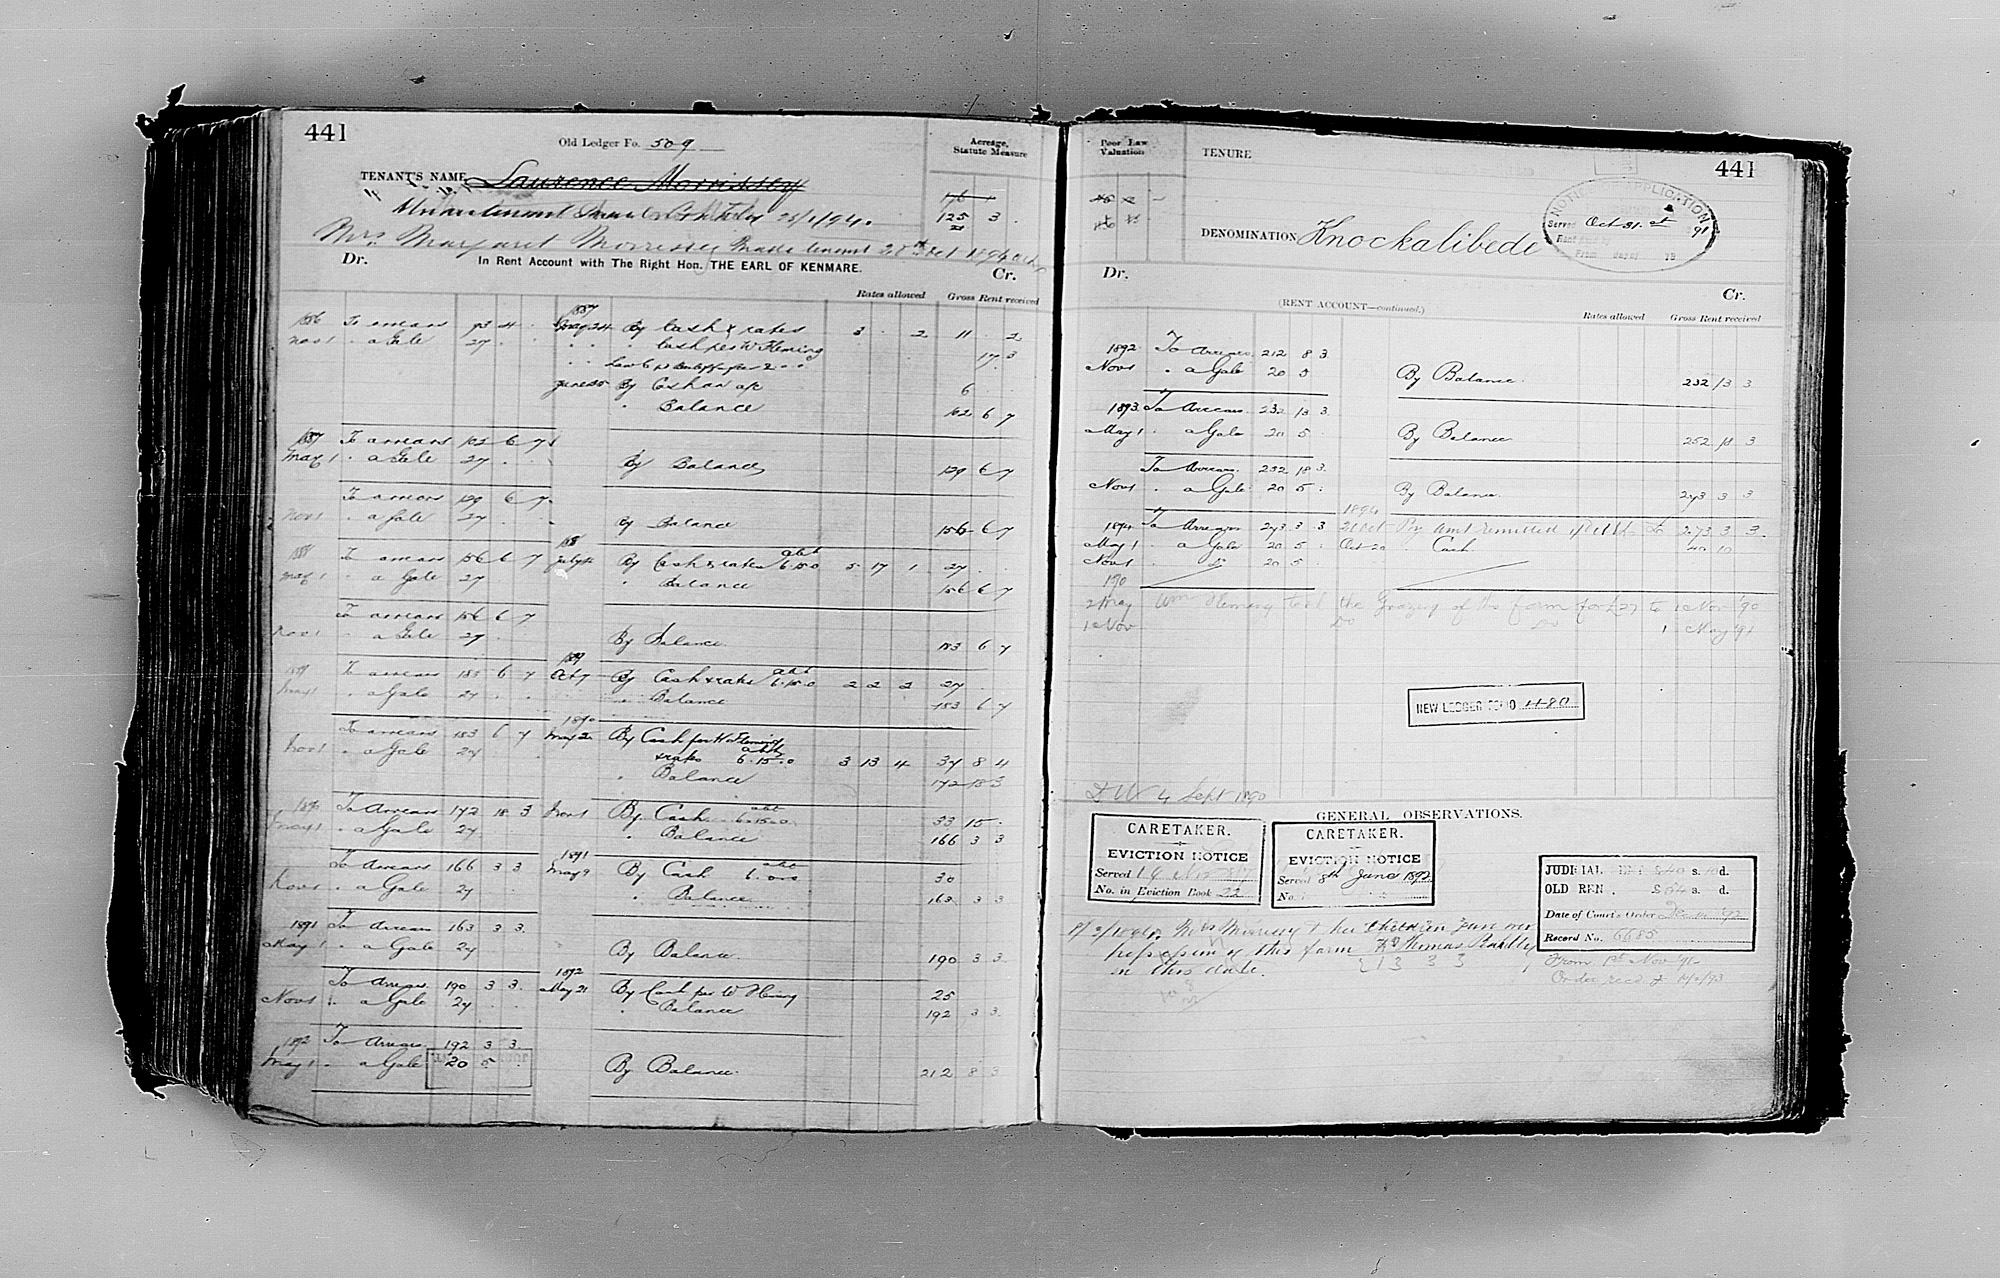 441
Old Ledger Fo. 509
Acreage, Statute Measure
TENANT'S NAME Laurence Morrissey
176 1
125 3
21
25/1/94.
Mrs Margaret Morrissey made tenant 20th Oct 1894
Dr. In Rent Account with The Right Hon. THE EARL OF KENMARE. Cr.
Rates allowed Gross Rent received
1886 To arrears 93 4 . 1887 May 24 By Cash & rates 3 . 2 11 . 2
Nov 1 " a Gale 27 . . " " Cash per W Fleming 17 3
June 25 By Cash on a/c 6 . .
" Balance 102 6 7
1887 To arrears 102 6 7
May 1 " a Gale 27 . . By Balance 129 6 7
To arrears 129 6 7
Nov 1 " a Gale 27 . . By Balance 156 6 7
1888 To arrears 156 6 7 188 July By Cash & rates abt 6.15.0 5 17 1 27 . .
May 1 " a Gale 27 " Balance 156 6 7
To arrears 156 6 7
Nov 1 " a Gale 27 . By Balance. 183 6 7
1889 To arrears 183 6 7 1889 Oct 7 By Cash & rates abt 6.15.0 2 2 2 27 .
May 1 " a Gale 27 . . " Balance 183 6 7
To arrears 183 6 7 1890 May 2 By Cash per W Fleming
Nov 1 " a Gale 27 . & rates abt 6.15.0 3 13 4 37 8 4
" Balance 172 18 3
1890 To Arrears 172 18 3 Nov 1 By Cash abt 6.15.0 33 15 .
May 1 " a Gale 27 " Balance 166 3 3
To Arrears 166 3 3 1891 May 9 By Cash abt 30
Nov 1 " a Gale 27 " Balance 163 3 3
1891 To Arrears 163 3 3
May 1 " a Gale 27 By Balance. 190 3 3
To Arrears 190 3 3 1892 May 21 By Cash per W Fleming 25
Nov 1 " a Gale 27 " Balance 192 3 3
1892 To Arrears 192 3 3
May 1 " a Gale 20 5 . By Balance. 212 8 3
Poor Law Valuation
TENURE
441
NOTICE OF APPLICATION
Served Oct 31st 91
DENOMINATION Knockalibede
Dr. Cr.
(RENT ACCOUNT—continued.)
Rates allowed Gross Rent received
1892 To Arrears 212 8 3
Nov 1 " a Gale 20 5 By Balance. 232 13 3
1893 To Arrears 232 13 3
May 1 " a Gale 20 5 . By Balance 252 18 3
To Arrears 252 18 3
Nov 1 " a Gale 20 5 . By Balance. 273 3 3
1894
1894 To Arrears 273 3 3 20 Oct By Amt remitted 273 3 3
May 1 " a Gale 20 5 . Oct 20 " Cash 40 10
Nov 1 " Do 20 5 .
190
2 May Wm Fleming took the Grazing of this farm for £27 to 1 Nov '90
1 Nov Do Do 1 May '91
NEW LEDGER FOLIO 480
4 Sept 1890
GENERAL OBSERVATIONS.
CARETAKER.
EVICTION NOTICE
Served
No. in Eviction Book 22
CARETAKER.
EVICTION NOTICE
Served 8th June 1892
No.
JUDICIAL RENT £40 s. 10 d.
OLD RENT. £54 s. d.
Date of Court's Order Dec '92
Record No. 6685
From 1st Nov '92
Mrs Morrissey & her Children gave over
possession of this farm to Thomas
on this date.
213 3 3